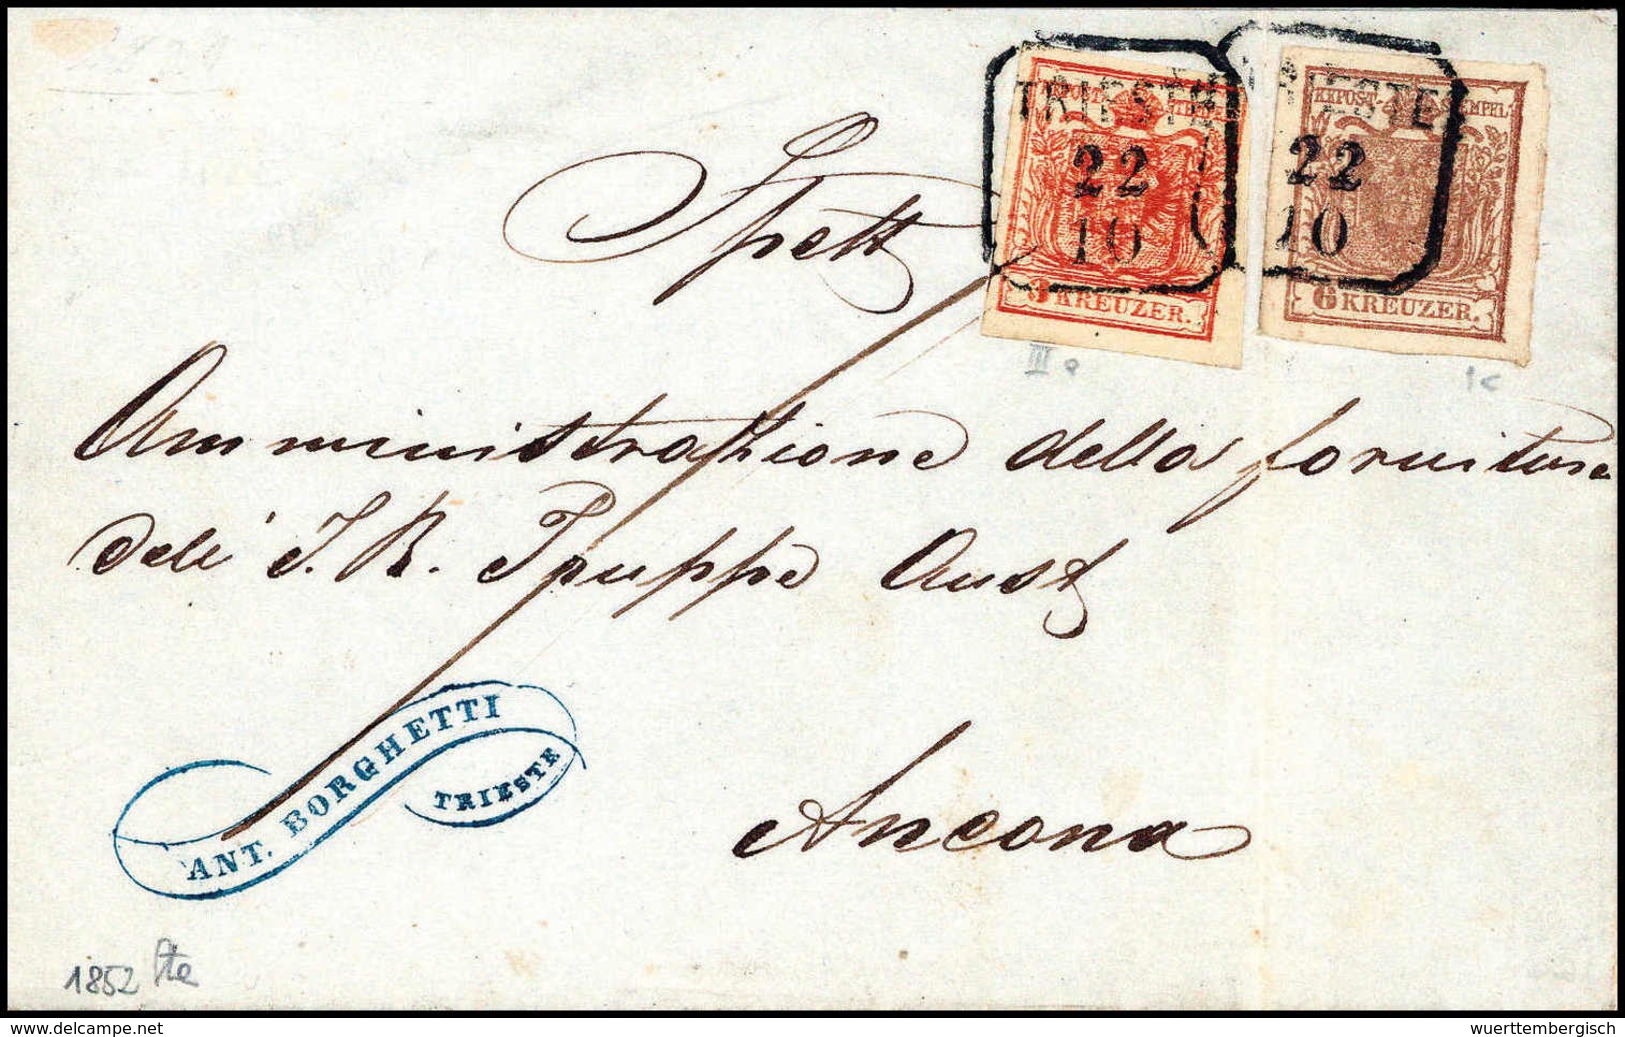 TRIESTE
22
10
TRIESTE
22
10
KKPOST-STEMPEL
3 KREUZER.
6 KREUZER.
III a
1c
Spett
Amministrazione della forniture
delle I. R. Truppe Aust
Ancona
ANT. BORGHETTI
TRIESTE
1852
www.delcampe.net
wuerttembergisch